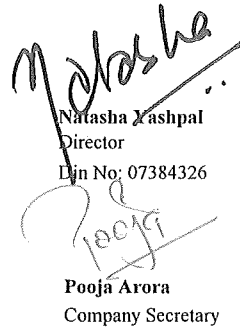 Natasha
Natasha Yashpal
Director
Din No: 07384326
Pooja
Pooja Arora
Company Secretary